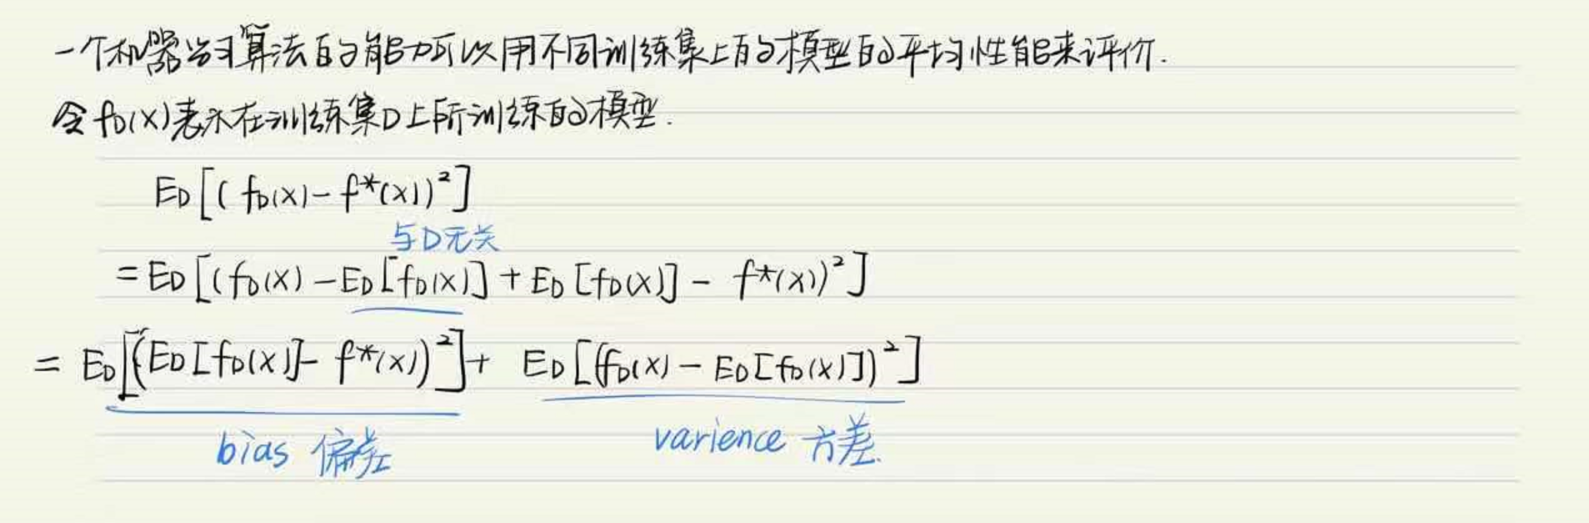 一个机器学习算法的能力可以用不同训练集上的模型的平均性能来评价.
令 f_D(x)表示在训练集D上所训练的模型.
E_D[( f_D(x) - f*(x))²]
与D无关
= E_D[(f_D(x) - E_D[f_D(x)] + E_D[f_D(x)] - f*(x))²]
= E_D[(E_D[f_D(x)] - f*(x))²] + E_D[(f_D(x) - E_D[f_D(x)])²]
bias 偏差 varience 方差.